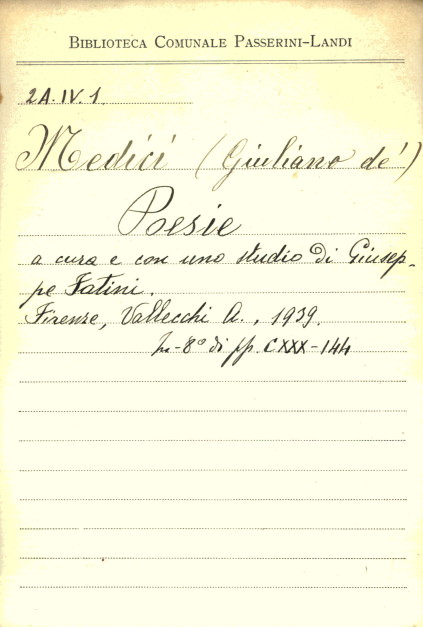 BIBLIOTECA COMUNALE PASSERINI-LANDI
2A.IV.1.
Medici (Giuliano de')
Poesie
a cura e con uno studio di Giusep-
pe Fatini.
Firenze, Vallecchi A., 1939.
In-8° di pp. CXXX-144